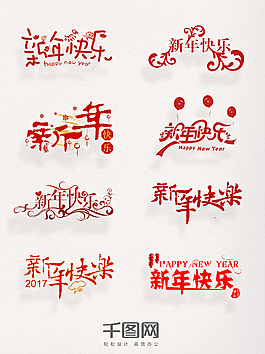 新年快乐
happy new year
新年快乐
新年
快乐
新年快乐
Happy New Year
新年快乐
新年快樂
新年快樂
2017
HAPPY NEW YEAR
新年快乐
千图网
轻松设计 高效办公